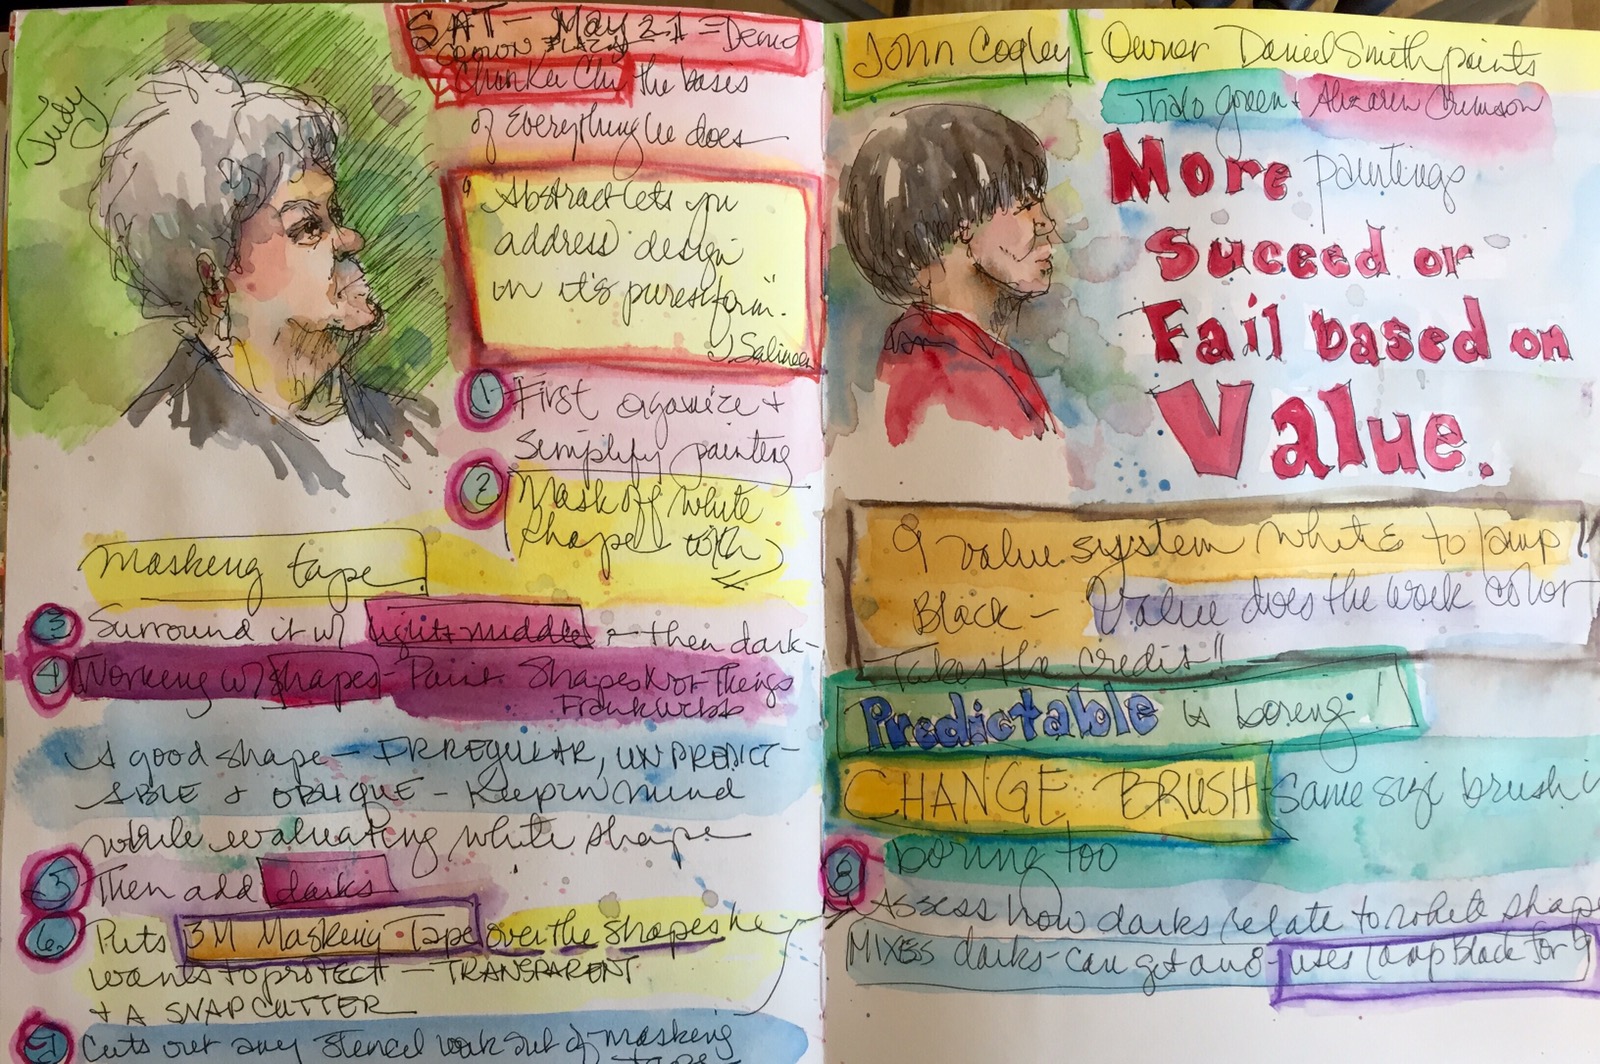 Judy
SAT - May 21 = Demo
CROWN PLAZA
the basis
of Everything he does
"Abstract lets you
address design
in it's purest form".
1 First organize +
Simplify painting
2 Mask off white
shape with
Masking tape
3 Surround it w/ lights middle + then dark -
4 Working w/ shapes - Paint Shapes not Things
Frank Webb
A good shape - IRREGULAR, UNPREDICT-
ABLE & OBLIQUE - Keep in mind
while evaluating white shape
5 Then add darks
6. Puts 3M Masking Tape over the shapes he
wants to protect - TRANSPARENT
+ A SNAP CUTTER
7 Cuts out any stencil work out of masking
tape
John Cogley - Owner Daniel Smith paints
Thalo green + Alizarin Crimson
More paintings
Succeed or
Fail based on
Value.
9 value system white to lamp
Black - Value does the work color
Takes the credit"
Predictable is boring!
CHANGE BRUSH - same size brush is
boring too
8 Assess how darks relate to white shape
MIXES darks - can get an 8 - uses Lamp Black for 9